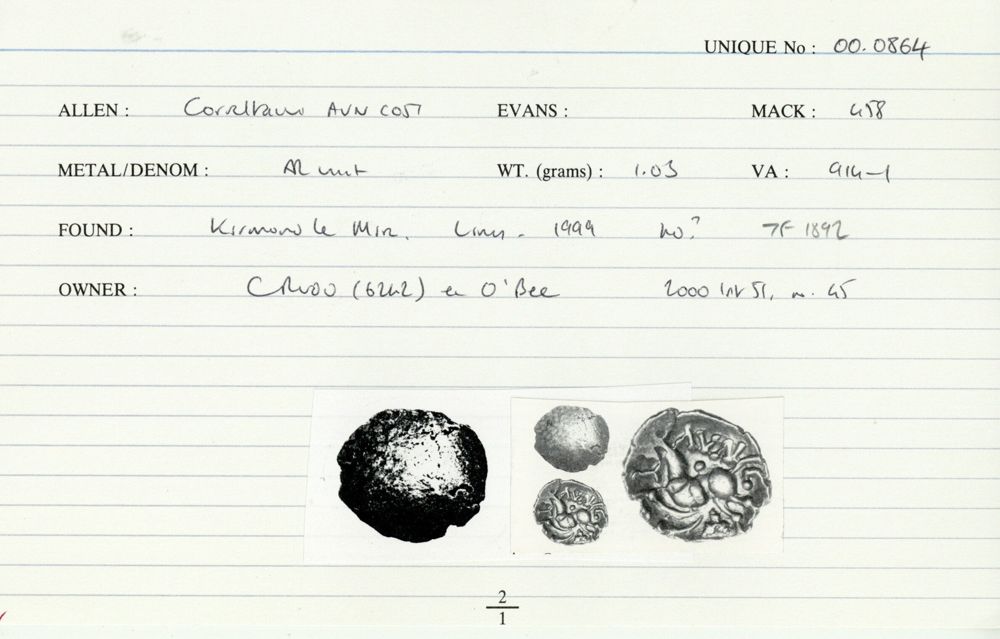 UNIQUE No : 00.0864
ALLEN : AVN COST EVANS : MACK : 458
METAL/DENOM : AR unit WT. (grams) : 1.03 VA : 914-1
FOUND : Kirmond le Mire, Lincs. 1999 no? TF 1892
OWNER : (6242) ex O'Bee 2000 51, 45
AVN
2
1